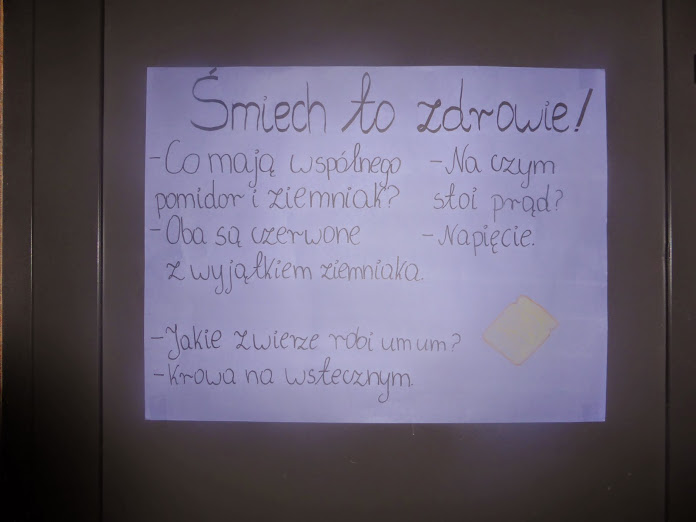 Śmiech to zdrowie!
-Co mają wspólnego
pomidor i ziemniak?
-Oba są czerwone
z wyjątkiem ziemniaka.
-Na czym
stoi prąd?
-Napięcie.
-Jakie zwierze robi um um?
-Krowa na wstecznym.